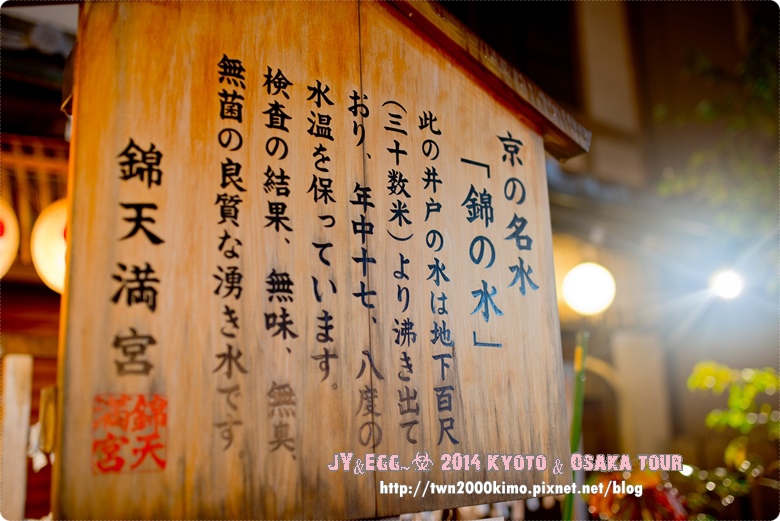 京の名水
「錦の水」
此の井戸の水は地下百尺
(三十数米)より沸き出て
おり、年中十七、八度の
水温を保っています。
検査の結果、無味、無臭、
無菌の良質な湧き水です。
錦天満宮
錦天
満宮
JY&EGG~ 2014 KYOTO & OSAKA TOUR
http://twn2000kimo.pixnet.net/blog